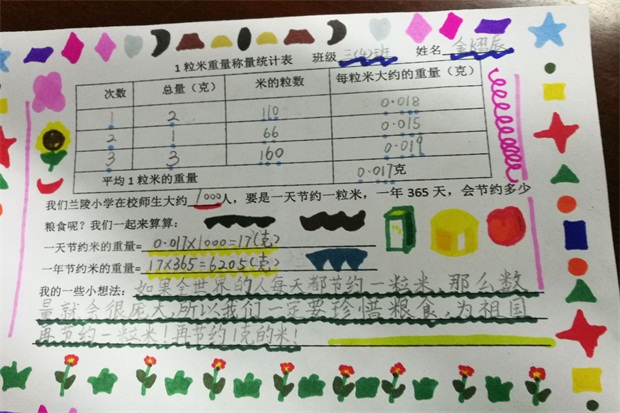 1粒米重量称量统计表 班级 三(4)班 姓名 金熠辰
次数 总量（克） 米的粒数 每粒米大约的重量（克）
1 2 110 0.018
2 1 66 0.015
3 3 160 0.019
平均1粒米的重量 0.017克
我们兰陵小学在校师生大约 1000人，要是一天节约一粒米，一年365天，会节约多少
粮食呢？我们一起来算算：
一天节约米的重量= 0.017×1000=17(克)
一年节约米的重量= 17×365=6205(克)
我的一些小想法：如果全世界的人每天都节约一粒米,那么数
量就会很庞大,所以我们一定要珍惜粮食,为祖国
再节约一粒米!再节约1克的米!